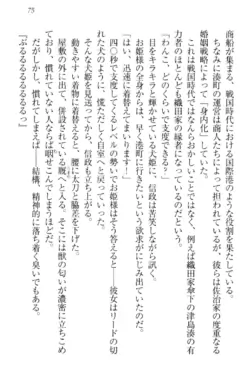 75
商船が集まる、戦国時代における国際港のような役割を果たしていた。
ちなみに湊町の運営は商人たちによって担われているが、彼らは佐治家の度重なる
婚姻戦略によって『身内化』していた。
これは戦国時代ではよくあることで、他にも例えば織田家傘下の津島湊の有
力者のほとんどが織田家の縁者になっていたという。
「わんこ、どのくらいで支度できる?」
目をキラキラと輝かせている犬姫に、信政は苦笑しながら試問。
お姫様の全身からは、早く湊町に行きたいという欲求がにじみ出ていた。
「はい、迅速に着替えて参ります!」
四〇秒で支度してくるレベルの勢いでお姫様はそう答えると――彼女はリードの切
れた犬のように、慌ただしく自室へと戻っていく。
そんな犬姫を見送って、信政も支度を始める。
動きやすい着物に着替えると、腰に太刀と脇差を下げた。
屋敷の外に出て、併設されている厩へと入る。そこには獣の匂いが濃密に立ちこめ
ており、慣れていない人ならば咽せこんでしまうほどだ。
だがしかし、慣れてしまえば――結構、精神的に落ち着く臭いでもある。
『ぶるるるるるるるっ』